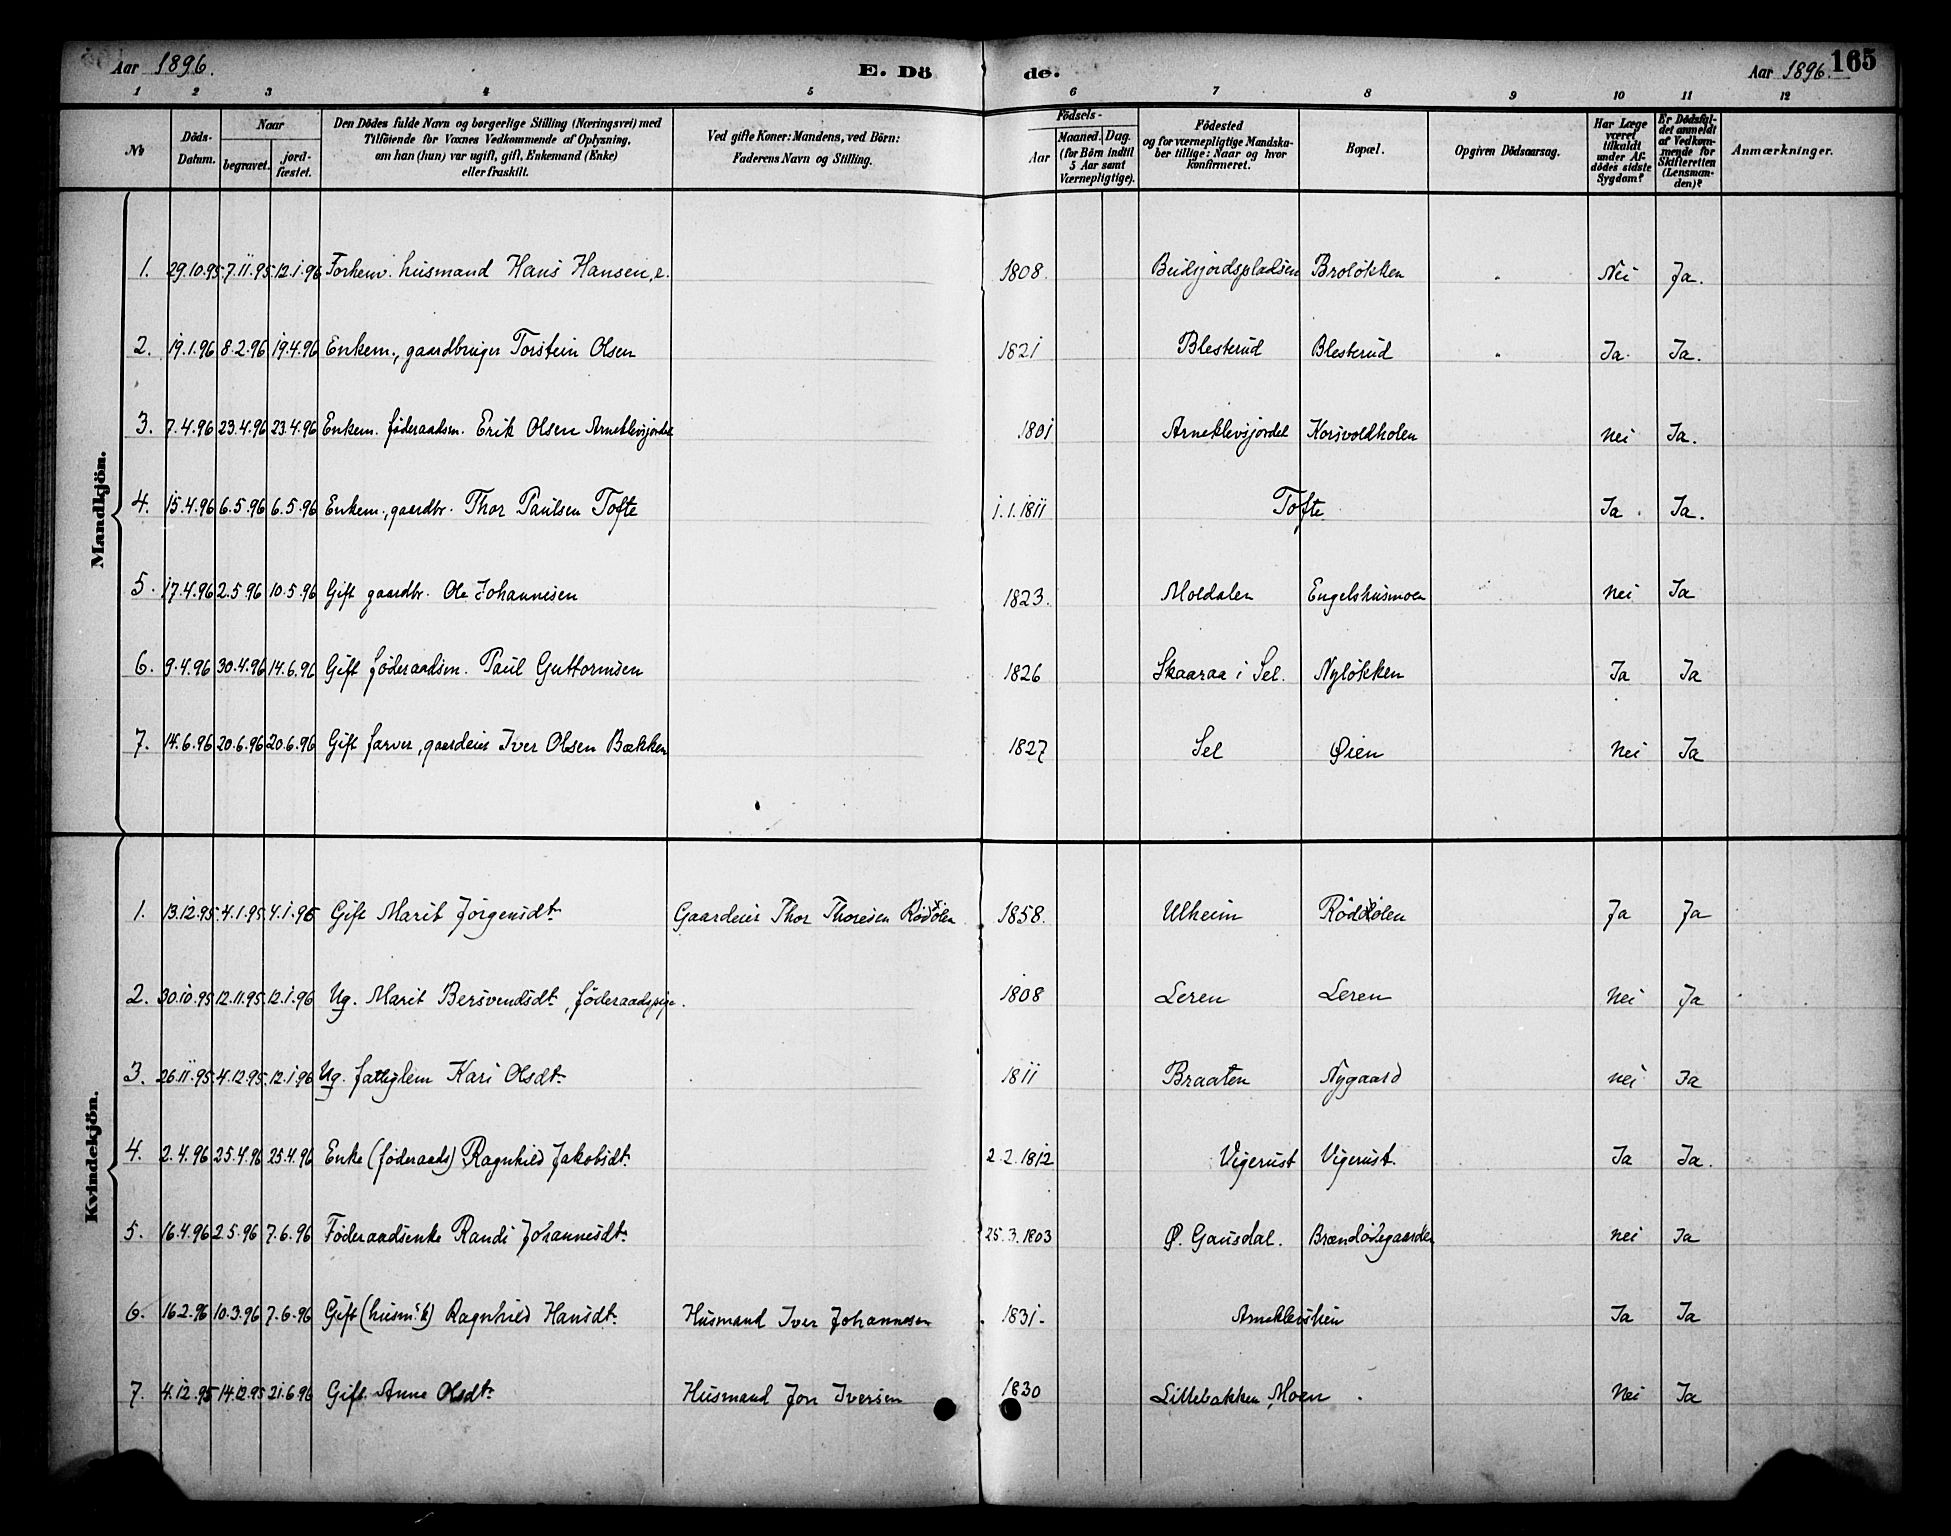 Aar 1896. E. Dö de. Aar 1896. 165
1 2 3 4 5 6 7 8 9 10 11 12
No Döds-Datum. Naar begravet. jordfæstet. Den Dödes fulde Navn og borgerlige Stilling (Næringsvei) med Tilföiende for Voxnes Vedkommende af Oplysning, om han (hun) var ugift, gift, Enkemand (Enke) eller fraskilt. Ved gifte Koner: Mandens, ved Börn: Faderens Navn og Stilling. Födsels- Aar Maaned. Dag. (for Börn indtil 5 Aar samt Værnepligtige). Födested og for værnepligtige Mandskaber tillige: Naar og hvor konfirmeret. Bopæl. Opgiven Dödsaarsag. Har Læge været tilkaldt under Afdödes sidste Sygdom? Er Dödsfaldet anmeldt af Vedkommende for Skifteretten (Lensmanden)? Anmærkninger.
Mandkjön.
1. 29.10.95 7.11.95 12.1.96 Forhenv. husmand Hans Hansen, e. 1808. Brolökken Nei Ja.
2. 19.1.96 8.2.96 19.4.96 Enkem., gaardbruger Torstein Olsen 1821 Blesterud Blesterud Ja. Ja.
3. 7.4.96 23.4.96 23.4.96 Enkem. föderaadsm. Erik Olsen Arneklevsjordet 1801 Arneklevsjordet Korsvoldholen Nei Ja.
4. 15.4.96 6.5.96 6.5.96 Enkem., gaardbr. Thor Paulsen Tofte 1.1.1811 Tofte. Ja. Ja.
5. 17.4.96 2.5.96 10.5.96 Gift gaardbr. Ole Johannesen 1823. Moldalen Engelshusmoen Nei Ja
6. 9.4.96 30.4.96 14.6.96 Gift föderaadsm. Paul Guttormsen 1826 Skaaraa i Sel. Nylökken Ja Ja
7. 14.6.96 20.6.96 20.6.96 Gift farver, gaardeier Iver Olsen Bækken 1827 Sel Øien Nei Ja
Kvindekjön.
1. 13.12.95 4.1.95 4.1.96 Gift Marit Jörgensdt. Gaardeier Thor Thoresen 1858. Ulheim Ja Ja
2. 30.10.95 12.11.95 12.1.96 Ug. Marit Bersvendsdt., föderaadspige. 1808 Leren Leren Nei Ja
3. 26.11.95 4.12.95 12.1.96 Ug. fattiglem Kari Olsdt. 1811 Braaten Nygaard nei Ja
4. 2.4.96 25.4.96 25.4.96 Enke (föderaads) Ragnhild Jakobsdt. 2.2.1812 Vigerust Vigerust. Ja Ja.
5. 16.4.96 2.5.96 7.6.96 Föderaadsenke Randi Johannesdt. 25.3.1803 Ø. Gausdal. Nei Ja
6. 16.2.96 10.3.96 7.6.96 Gift (husm.k) Ragnhild Hansdt. Husmand Iver Johannesen 1831. Ja Ja
7. 4.12.95 14.12.95 21.6.96 Gift Anne Olsdt. Husmand Jon Iversen 1830 Lillebakken, Moen Nei Ja